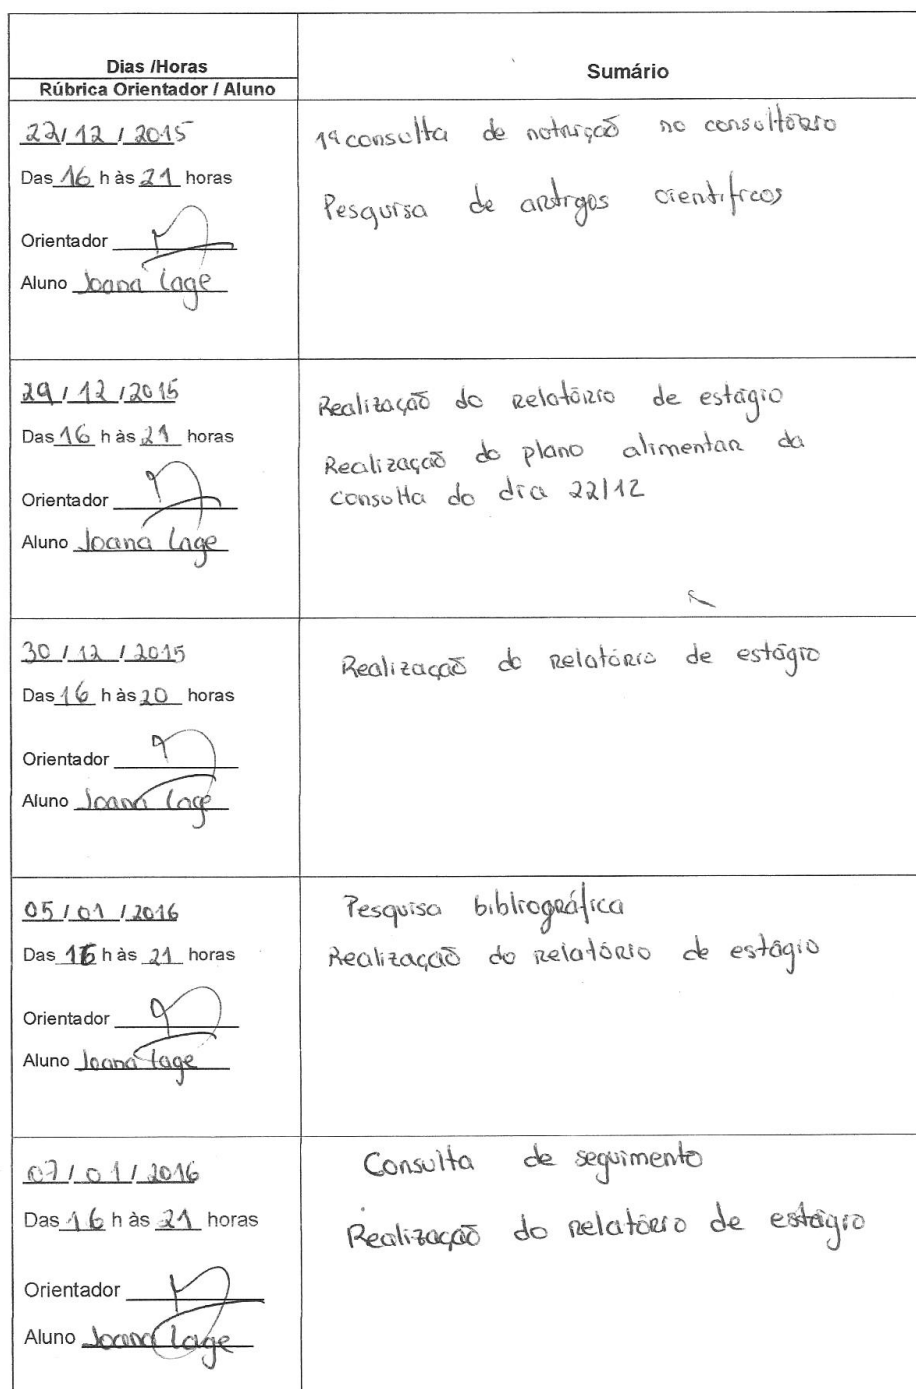 Dias /Horas
Rúbrica Orientador / Aluno
Sumário
22/ 12 / 2015
Das 16 h às 21 horas
Orientador
Aluno Joana Lage
1ª consulta de nutrição no consultório
Pesquisa de artigos científicos
29 / 12 / 2015
Das 16 h às 21 horas
Orientador
Aluno Joana Lage
Realização do relatório de estágio
Realização do plano alimentar da
consulta do dia 22/12
30 / 12 / 2015
Das 16 h às 20 horas
Orientador
Aluno Joana Lage
Realização do relatório de estágio
05 / 01 / 2016
Das h às 21 horas
Orientador
Aluno Joana Lage
Pesquisa bibliográfica
Realização do relatório de estágio
07 / 01 / 2016
Das 16 h às 21 horas
Orientador
Aluno Joana Lage
Consulta de seguimento
Realização do relatório de estágio